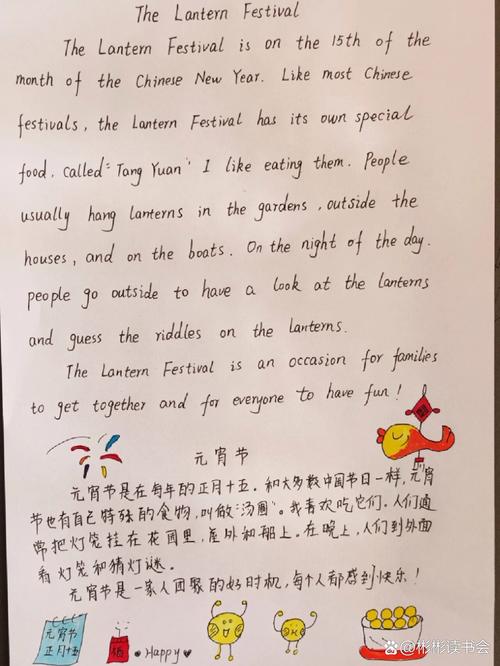 The Lantern Festival
The Lantern Festival is on the 15th of the
month of the Chinese New Year. Like most Chinese
festivals, the Lantern Festival has its own special
food. Called "Tang Yuan" I like eating them. People
usually hang lanterns in the gardens, outside the
houses, and on the boats. On the night of the day.
people go outside to have a look at the lanterns
and guess the riddles on the lanterns.
The Lantern Festival is an occasion for families
to get together and for everyone to have fun!
元宵节
元宵节是在每年的正月十五。和大多数中国节日一样,元宵
节也有自己特殊的食物,叫做"汤圆"。我喜欢吃它们。人们通
常把灯笼挂在花园里,屋外和船上。在晚上,人们到外面
看灯笼和猜灯谜。
元宵节是一家人团聚的好时机,每个人都感到快乐!
元宵节
正月十五
Happy
@彬彬读书会